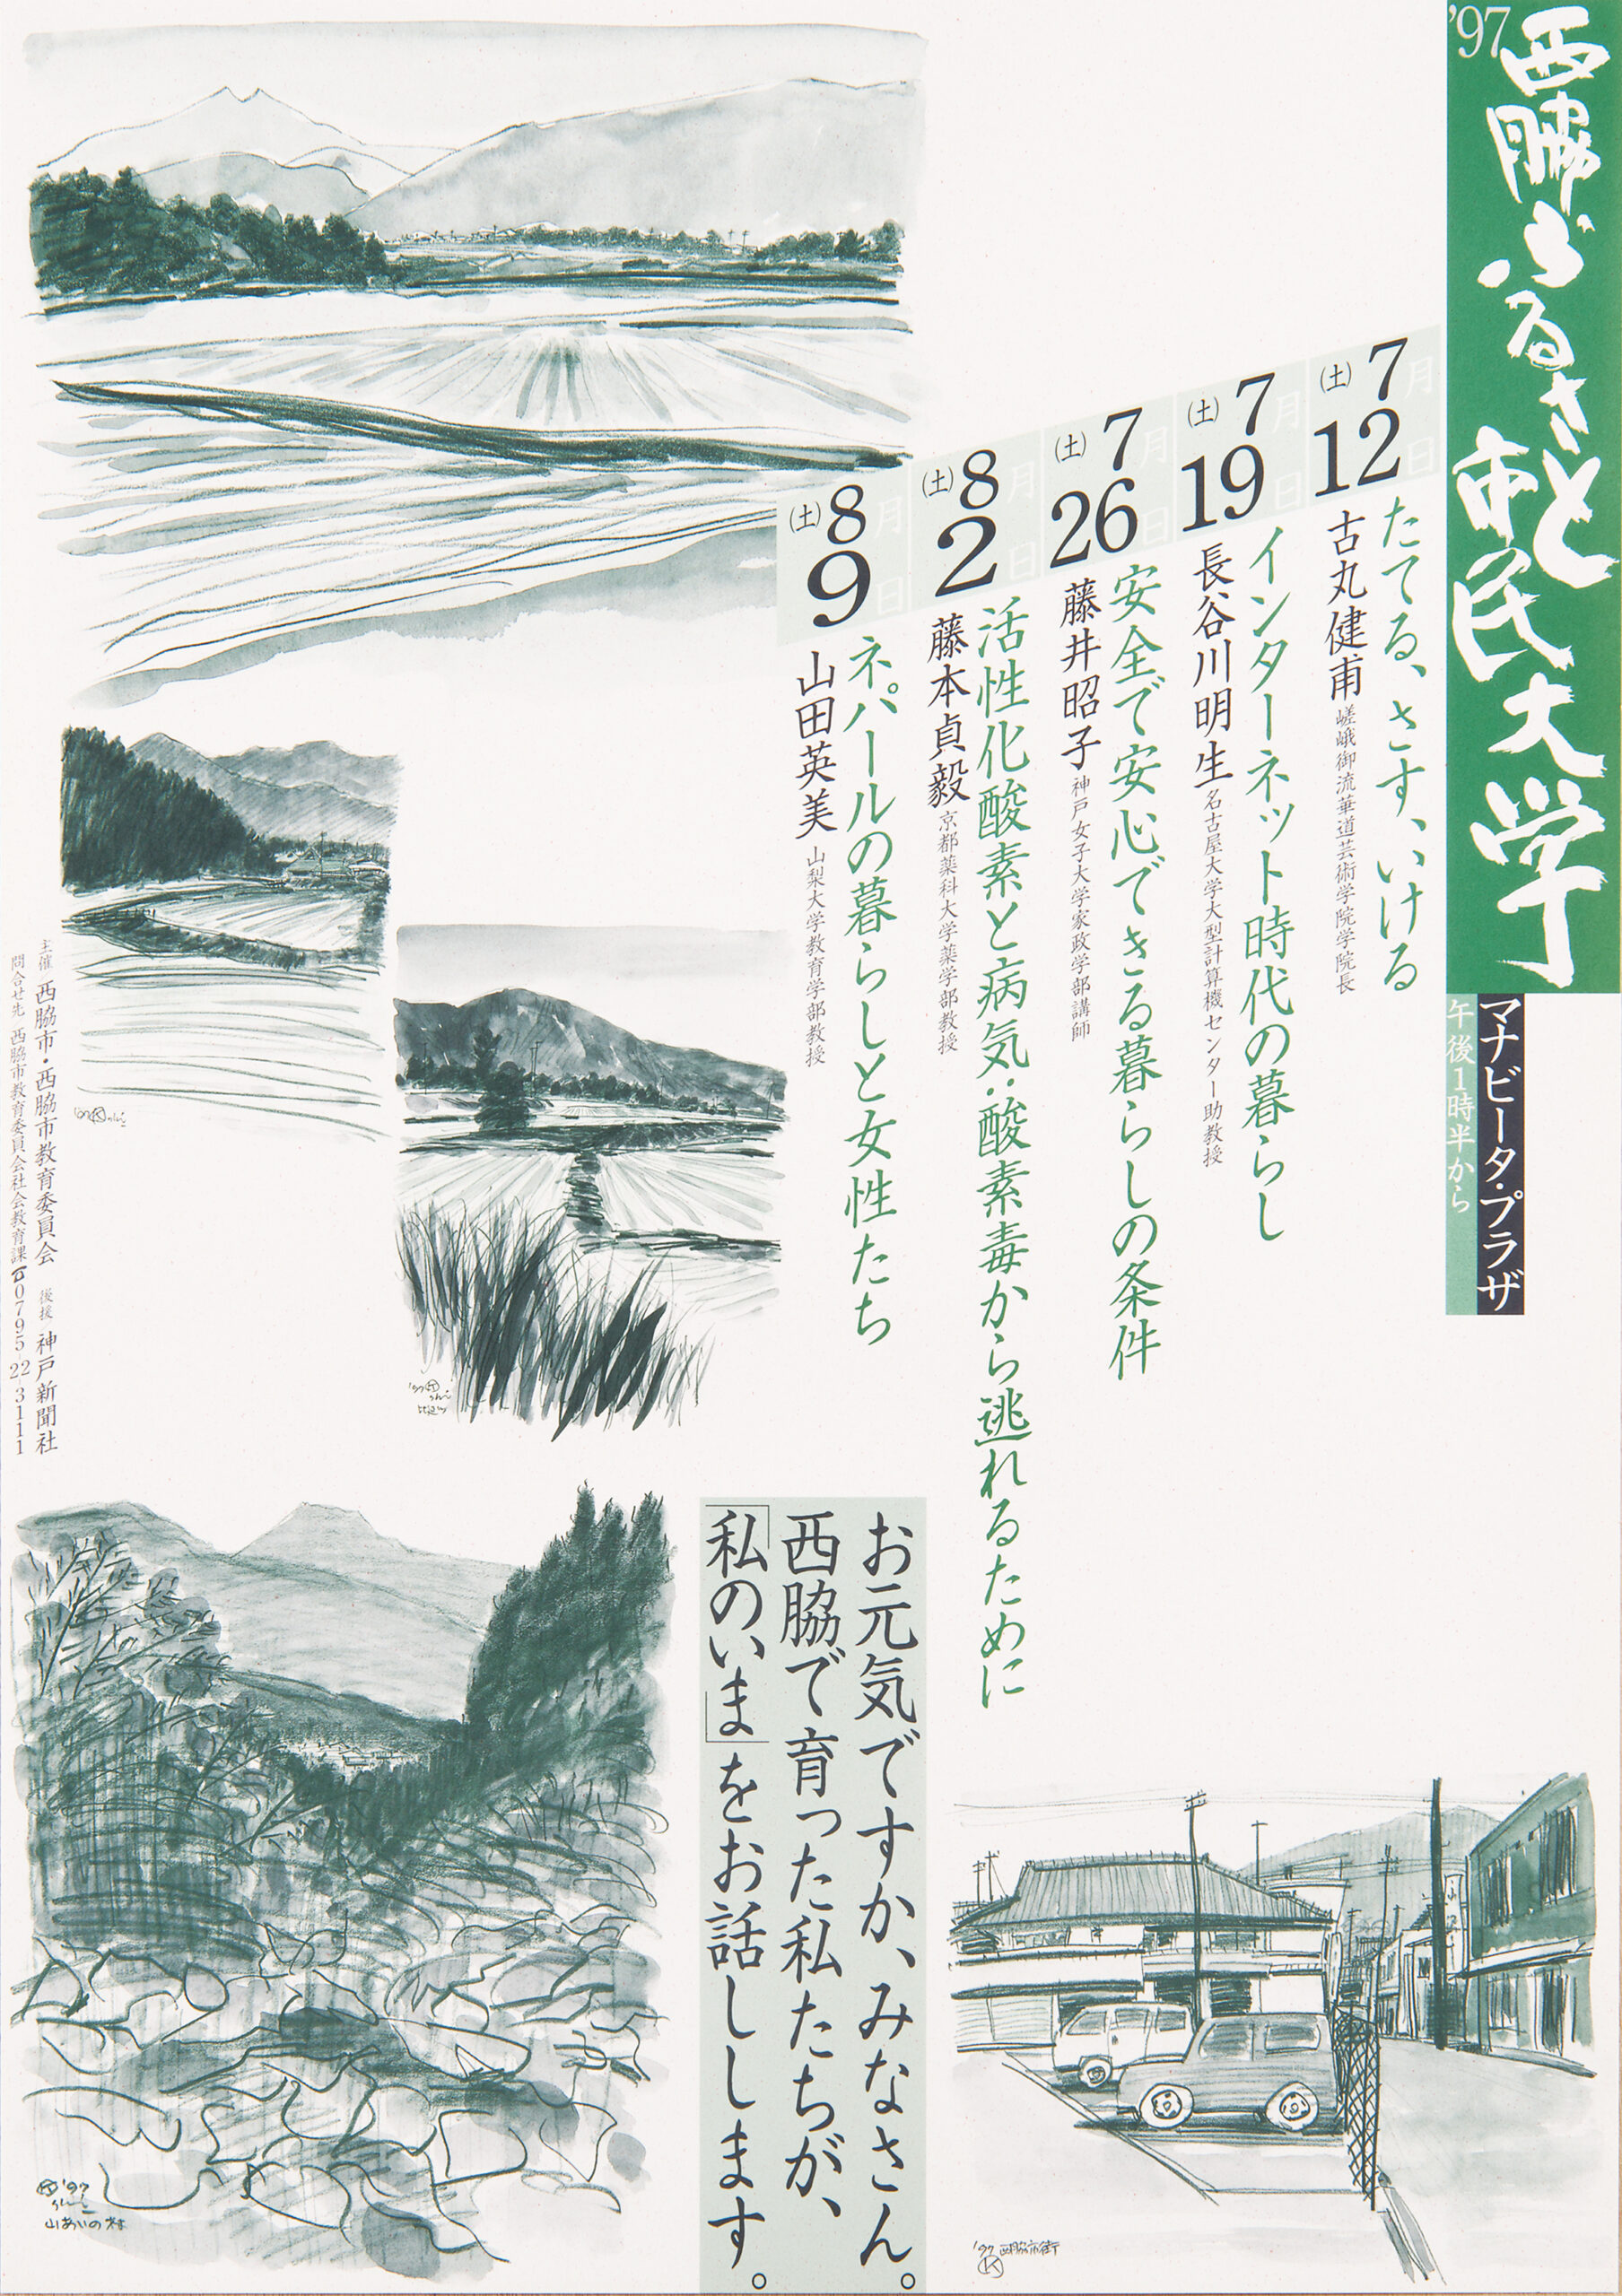 '97
西脇ふるさと市民大学
マナビータ・プラザ
午後1時半から
7月12日(土)
たてる、さす、いける
古丸健甫 嵯峨御流華道芸術学院学院長
7月19日(土)
インターネット時代の暮らし
長谷川明生 名古屋大学大型計算機センター助教授
7月26日(土)
安全で安心できる暮らしの条件
藤井昭子 神戸女子大学家政学部講師
8月2日(土)
活性化酸素と病気:酸素毒から逃れるために
藤本貞毅 京都薬科大学薬学部教授
8月9日(土)
ネパールの暮らしと女性たち
山田英美 山梨大学教育学部教授
お元気ですか、みなさん。
西脇で育った私たちが、
「私のいま」をお話しします。
主催 西脇市・西脇市教育委員会 後援 神戸新聞社
問合せ先 西脇市教育委員会社会教育課☎0795-22-3111
'97
'97
'97
山あいの村
'97 西脇市街